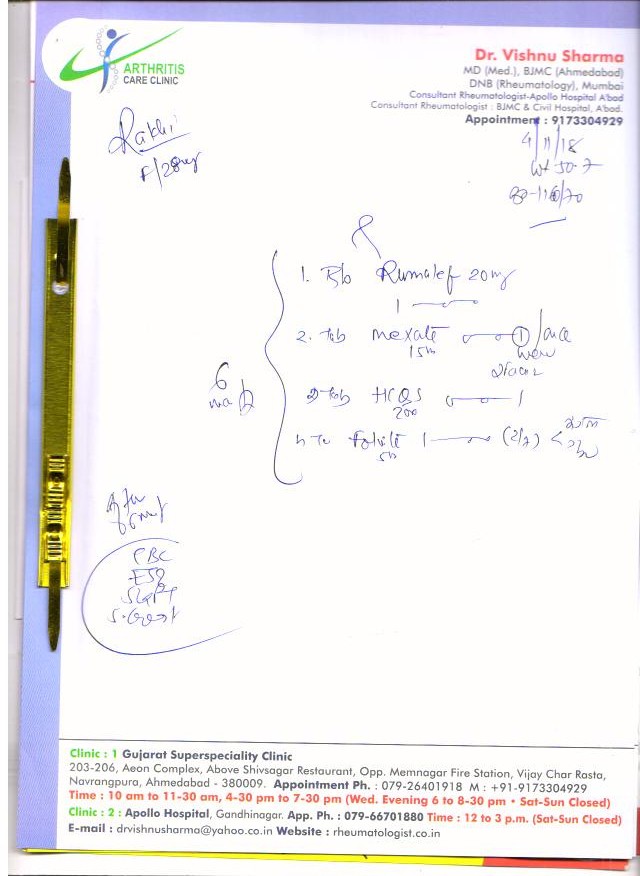 ARTHRITIS
CARE CLINIC
Dr. Vishnu Sharma
MD (Med.), BJMC (Ahmedabad)
DNB (Rheumatology), Mumbai
Consultant Rheumatologist-Apollo Hospital A'bad
Consultant Rheumatologist : BJMC & Civil Hospital, A'bad.
Appointment : 9173304929
Rakhi
F/28
4/11/18
1. Rumalef 20mg
1
2. Tab Mexate 1
15
Tab HCQS 1
200
Folvite 1 (2/7)
6
CBC
ESR
SGPT
S. Creat
Clinic : 1 Gujarat Superspeciality Clinic
203-206, Aeon Complex, Above Shivsagar Restaurant, Opp. Memnagar Fire Station, Vijay Char Rasta,
Navrangpura, Ahmedabad - 380009. Appointment Ph. : 079-26401918 M : +91-9173304929
Time : 10 am to 11-30 am, 4-30 pm to 7-30 pm (Wed. Evening 6 to 8-30 pm • Sat-Sun Closed)
Clinic : 2 : Apollo Hospital, Gandhinagar. App. Ph. : 079-66701880 Time : 12 to 3 p.m. (Sat-Sun Closed)
E-mail : drvishnusharma@yahoo.co.in Website : rheumatologist.co.in